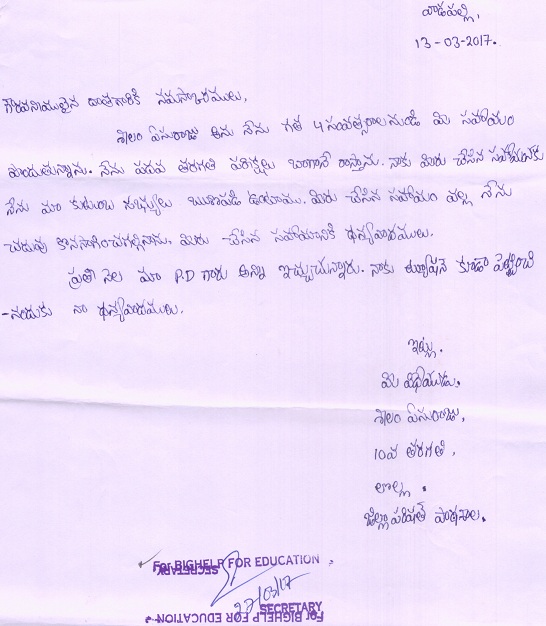 వాడపల్లి,
13-03-2017.
గౌరవనీయులైన దాతగారికి నమస్కారములు,
శీలం ఏసురాజు అను నేను గత 4 సంవత్సరాలనుండి మీ సహాయం
పొందుతున్నాను. నేను పదవ తరగతి పరీక్షలు బాగానే రాస్తాను. నాకు మీరు చేసిన సహాయానికి
నేను మా కుటుంబ సభ్యులు ఋణపడి ఉంటాము. మీరు చేసిన సహాయం వల్ల నేను
చదువు కొనసాగించగల్గినాను, మీరు చేసిన సహాయానికి ధన్యవాదములు.
ప్రతి నెల మా P.D గారు అన్నీ ఇచ్చుచున్నారు. నాకు ట్యూషన్ కూడా పెట్టించి
-నందుకు నా ధన్యవాదములు.
ఇట్లు.
మీ విధేయుడు.
శీలం ఏసురాజు,
10వ తరగతి,
లొల్ల.
జిల్లా పరిషత్ పాఠశాల.
For BIGHELP FOR EDUCATION
SECRETARY
22/03/17
SECRETARY
For BIGHELP FOR EDUCATION